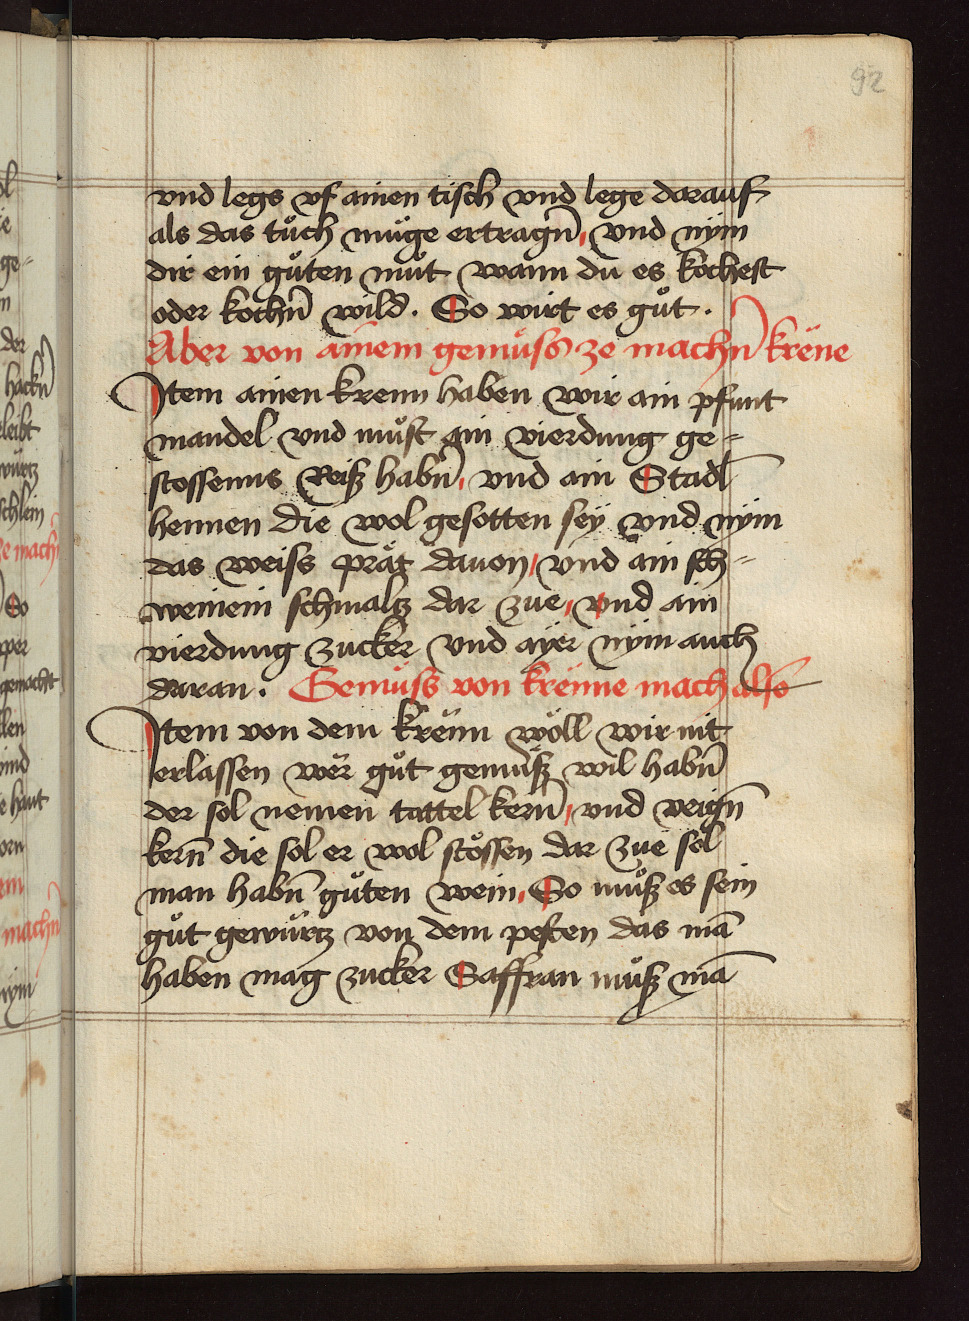 92
vnd legs vf ainen tisch vnd lege darauf
als das tuͦch muͤge ertragn̄, vnd nym
dir ein guͦten muͦt wann du es kochest
oder kochn̄ wild. So wirt es guͦt.
Aber von ainem gemuͤss ze machn̄ krëne
Item ainen krenn haben wir ain pfunt
mandel vnd muͦst ain vierdung ge=
stossenns Reiß habn̄, vnd ain Stadl
hennen die wol gesotten sey vnd nym
das weiss prät dauon, vnd ain sch=
weinein schmaltz dar zue, vnd ain
vierdung zucker vnd ayer nym auch
daran. Gemuͤss von krënne mach also
Item von dem krënn wöll wir nit
erlassen wër guͦt gemuͤß wil habn̄
der sol nemen tattel kern̄, vnd veign̄
kern̄ die sol er wol stössen dar zue sol
man habn̄ guͦten wein, So muͦß es sein
guͦt gewürtz von dem pesten das mā
haben mag zucker Saffran muͦß mā